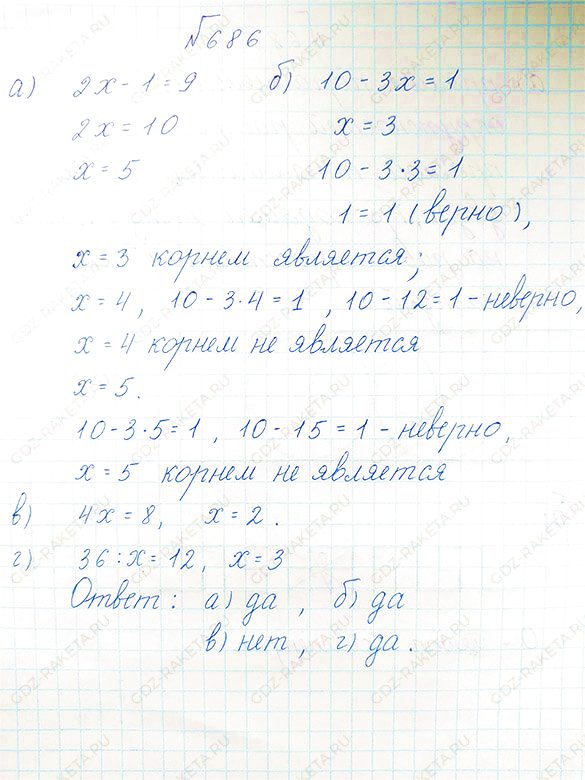 №686
а) 2x - 1 = 9 б) 10 - 3x = 1
2x = 10 x = 3
x = 5 10 - 3·3 = 1
1 = 1 (верно),
x = 3 корнем является;
x = 4, 10 - 3·4 = 1, 10 - 12 = 1 - неверно,
x = 4 корнем не является
x = 5.
10 - 3·5 = 1, 10 - 15 = 1 - неверно,
x = 5 корнем не является
в) 4x = 8, x = 2.
г) 36 : x = 12, x = 3
Ответ: а) да, б) да
в) нет, г) да.
GDZ-RAKETA.RU